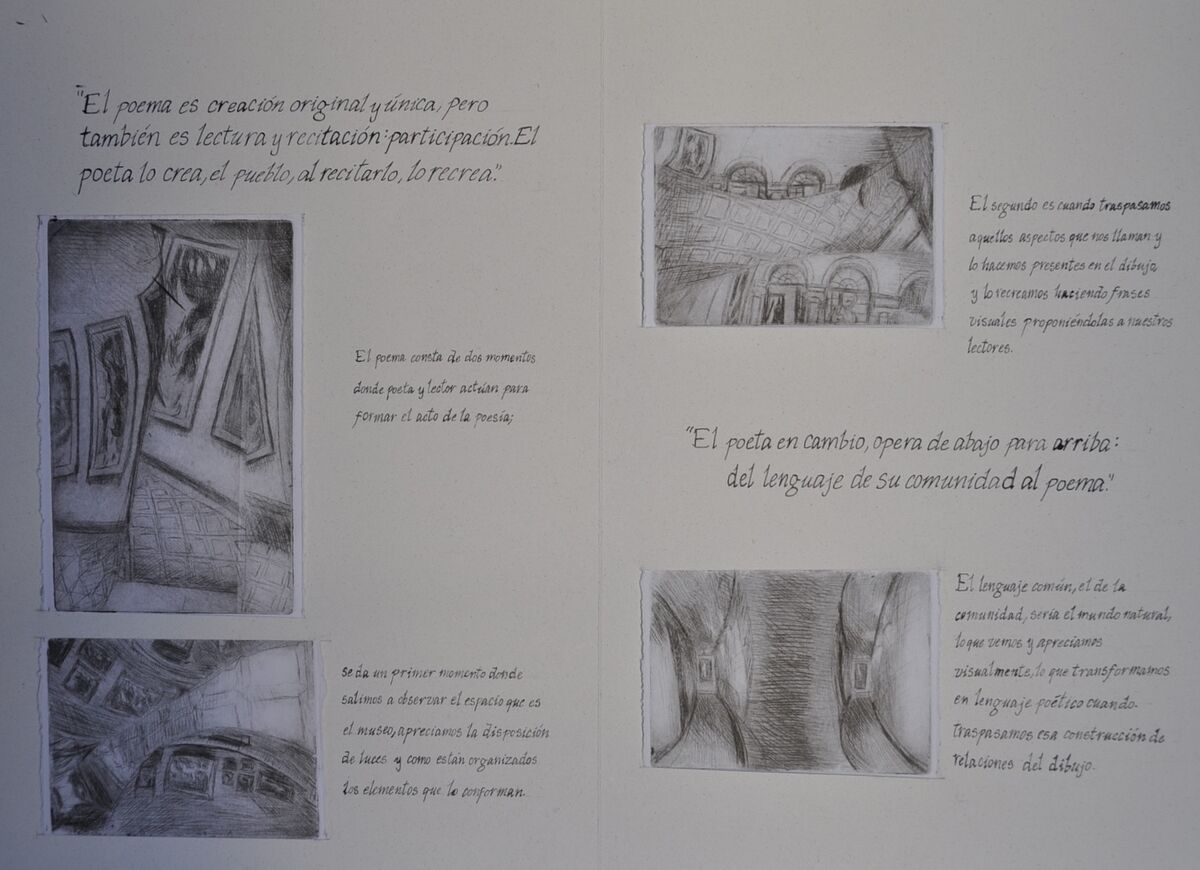 "El poema es creación original y única, pero
también es lectura y recitación: participación. El
poeta lo crea, el pueblo, al recitarlo, lo recrea."
El poema consta de dos momentos
donde poeta y lector actúan para
formar el acto de la poesía;
se da un primer momento donde
salimos a observar el espacio que es
el museo, apreciamos la disposición
de luces y como están organizados
los elementos que lo conforman.
El segundo es cuando traspasamos
aquellos aspectos que nos llaman y
lo hacemos presentes en el dibujo
y lo recreamos haciendo frases
visuales proponiéndolas a nuestros
lectores.
"El poeta en cambio, opera de abajo para arriba:
del lenguaje de su comunidad al poema."
El lenguaje común, el de la
comunidad, sería el mundo natural,
lo que vemos y apreciamos
visualmente, lo que transformamos
en lenguaje poético cuando.
traspasamos esa construcción de
relaciones del dibujo.